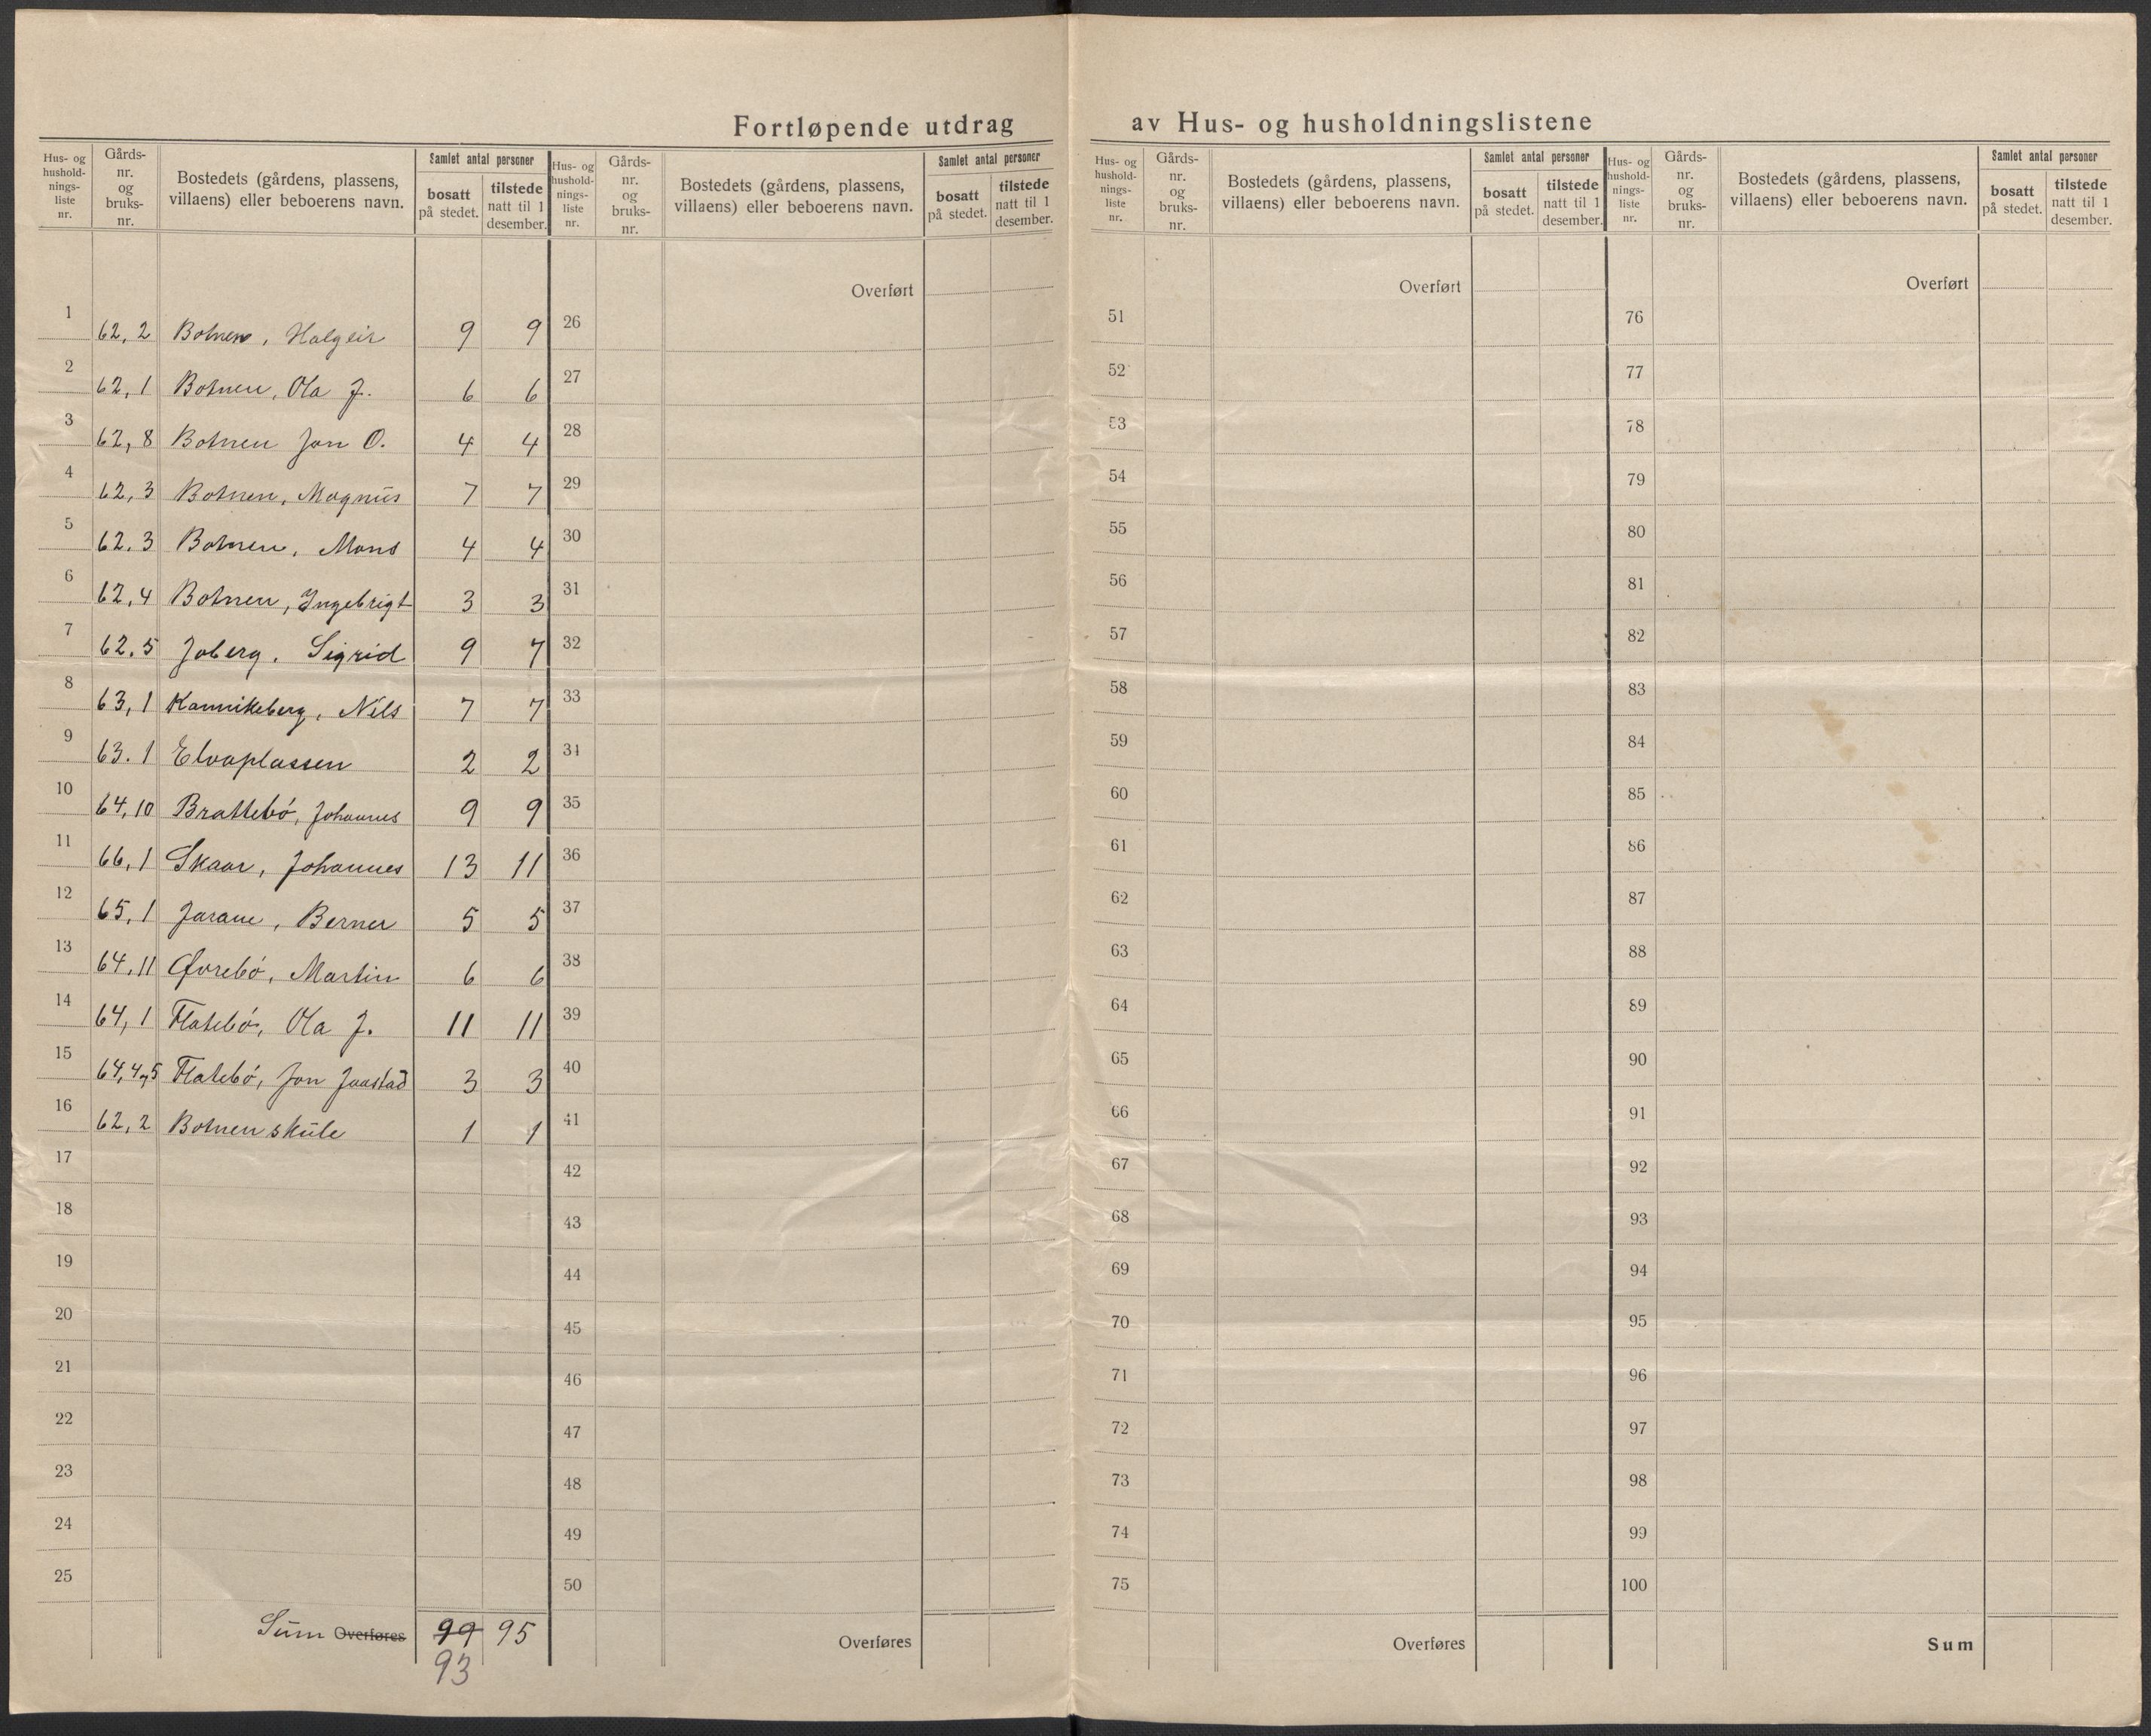 Fortløpende utdrag av Hus- og husholdningslistene
Hus- og hushold-nings-liste nr. Gårds-nr. og bruks-nr. Bostedets (gårdens, plassens, villaens) eller beboerens navn. Samlet antal personer bosatt på stedet. tilstede natt til 1 desember.
Hus- og hushold-nings-liste nr. Gårds-nr. og bruks-nr. Bostedets (gårdens, plassens, villaens) eller beboerens navn. Samlet antal personer bosatt på stedet. tilstede natt til 1 desember.
Hus- og hushold-nings-liste nr. Gårds-nr. og bruks-nr. Bostedets (gårdens, plassens, villaens) eller beboerens navn. Samlet antal personer bosatt på stedet. tilstede natt til 1 desember.
Hus- og hushold-nings-liste nr. Gårds-nr. og bruks-nr. Bostedets (gårdens, plassens, villaens) eller beboerens navn. Samlet antal personer bosatt på stedet. tilstede natt til 1 desember.
1 62,2 Botnen, Halgeir 9 9
2 62,1 Botnen, Ola J. 6 6
3 62,8 Botnen Jon O. 4 4
4 62,3 Botnen, Magnus 7 7
5 62.3 Botnen, Mons 4 4
6 62,4 Botnen, Ingebrigt 3 3
7 62.5 Joberg. Sigrid 9 7
8 63,1 Kannikeberg, Nils 7 7
9 63.1 Elvaplassen 2 2
10 64,10 Brattebó, Johannes 9 9
11 66,1 Skaar, Johannes 13 11
12 65,1 Jarane, Berner 5 5
13 64,11 Øvrebó, Martin 6 6
14 64,1 Flatebó, Ola J. 11 11
15 64,4,5 Flatebó, Jon Jaastad 3 3
16 62,2 Botnen skule 1 1
17
18
19
20
21
22
23
24
25
Sum Overføres 99 95
93
Overført
26
27
28
29
30
31
32
33
34
35
36
37
38
39
40
41
42
43
44
45
46
47
48
49
50
Overføres
Overført
51
52
53
54
55
56
57
58
59
60
61
62
63
64
65
66
67
68
69
70
71
72
73
74
75
Overføres
Overført
76
77
78
79
80
81
82
83
84
85
86
87
88
89
90
91
92
93
94
95
96
97
98
99
100
Sum